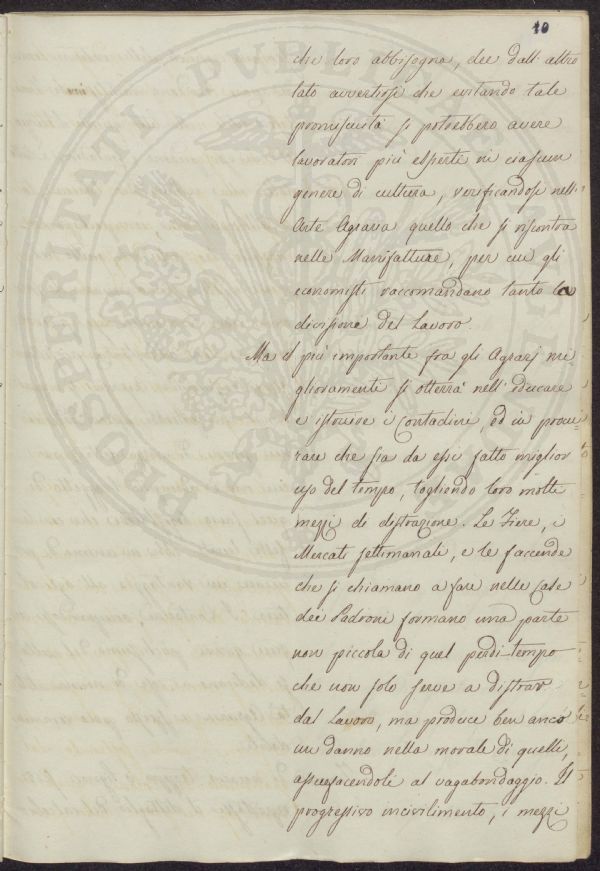 10
che loro abbisogna, dee dall'altro
lato avvertirsi che evitando tale
promiscuità si potrebbero avere
lavoratori più esperti in ciascun
genere di cultura, verificandosi nell'
Arte Agraria quello che si riscontra
nelle Manifatture, per cui gli
economisti raccomandano tanto la
divisione del Lavoro.
Ma il più importante fra gli Agrarj mi
glioramenti si otterrà nell'educare
e istruire i Contadini, ed in procu-
rare che sia da essi fatto miglior
uso del tempo, togliendo loro molti
mezzi di distrazione. Le Fiere, i
Mercati settimanali, e le faccende
che si chiamano a fare nelle Case
dei Padroni formano una parte
non piccola di quel perdi-tempo
che non solo serve a distrar
dal Lavoro, ma produce ben anco
un danno nella morale di quelli,
assuefacendoli al vagabondaggio. Il
progressivo incivilimento, i mezzi
PROSPERITATI PUBLICAE